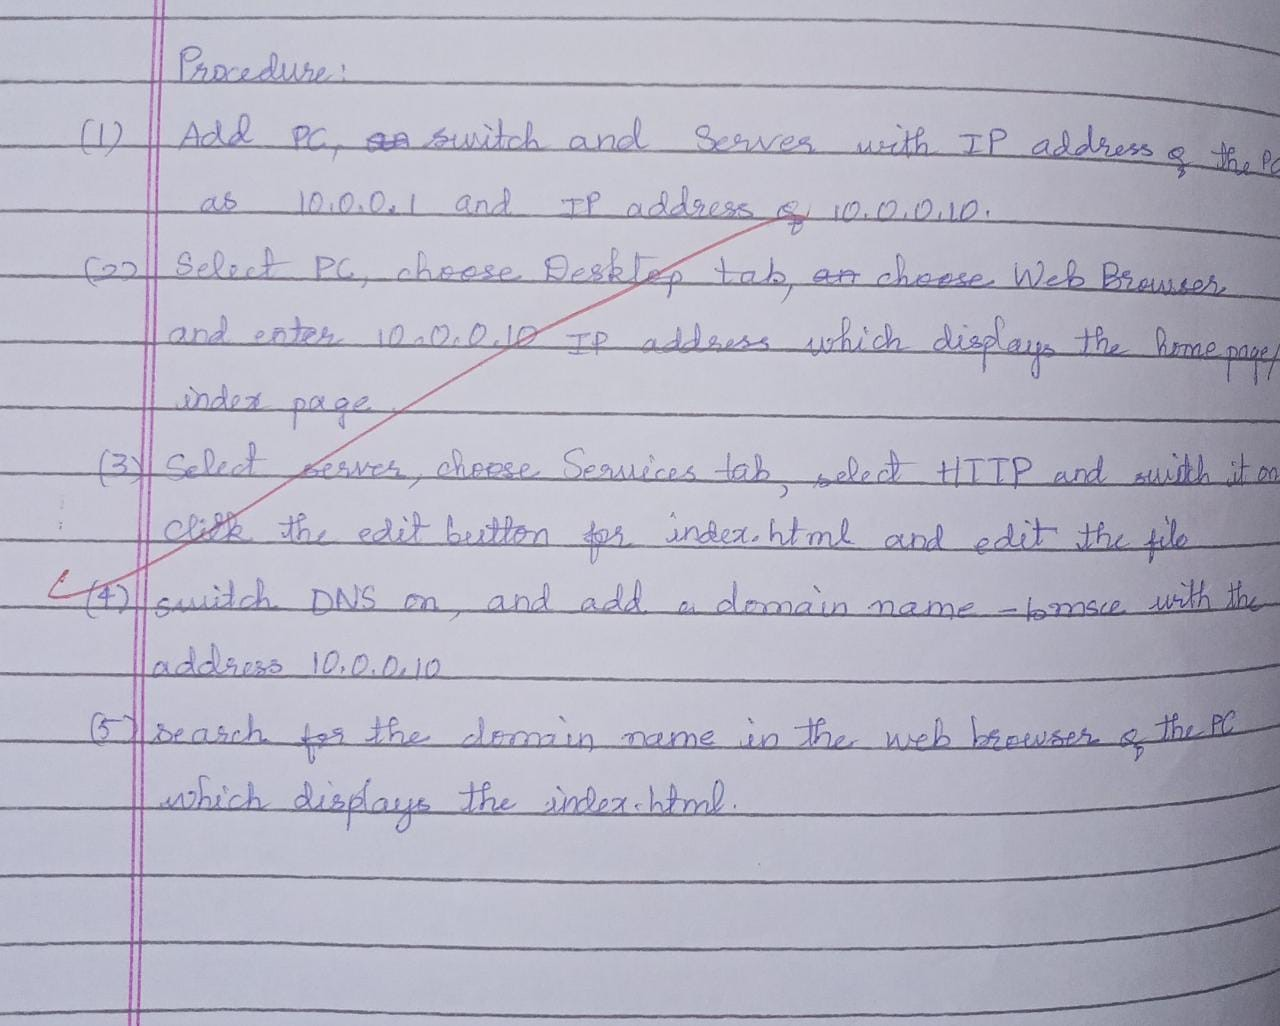 Procedure:
(1) Add PC, switch and Server with IP address of the PC
as 10.0.0.1 and IP address of 10.0.0.10.
(2) Select PC, choose Desktop tab, choose Web Browser
and enter 10.0.0.10 IP address which displays the home page/
index page.
(3) Select server, choose Services tab, select HTTP and swith it on
click the edit button for index.html and edit the file
(4) switch DNS on, and add a domain name - bmsce with the
address 10.0.0.10
(5) search for the domain name in the web browser of the PC
which displays the index.html.